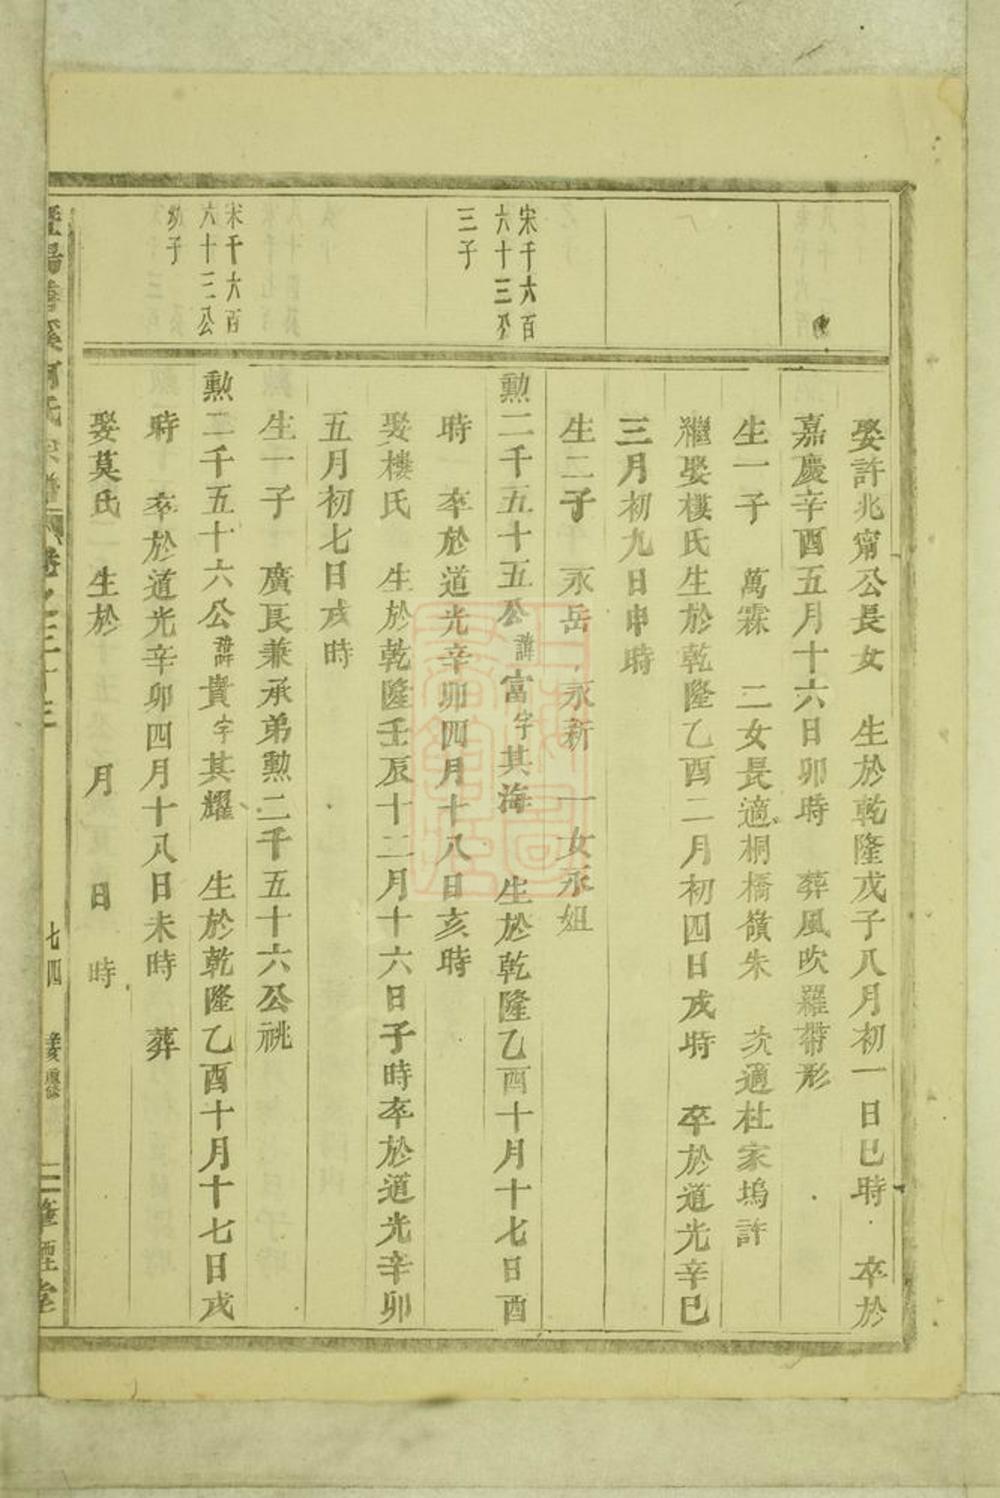 娶許兆甯公長女 生於乾隆戊子八月初一日巳時 卒於
嘉慶辛酉五月十六日卯時 葬風吹羅帶形
生一子 萬霖 二女長適桐橋嶺朱 次適杜家塢許
繼娶樓氏生於乾隆乙酉二月初四日戌時 卒於道光辛巳
三月初九日申時
生二子 永岳 永新 一女永妞
宋千六百
六十三公
三子
勲二千五十五公諱富字其海 生於乾隆乙酉十月十七日酉
時 卒於道光辛卯四月十八日亥時
娶樓氏 生於乾隆壬辰十二月十六日子時卒於道光辛卯
五月初七日戌時
生一子 廣良兼承弟勲二千五十六公祧
宋千六百
六十三公
幼子
勲二千五十六公諱貴字其耀 生於乾隆乙酉十月十七日戌
時 卒於道光辛卯四月十八日未時 葬
娶莫氏 生於 月 日 時
七四